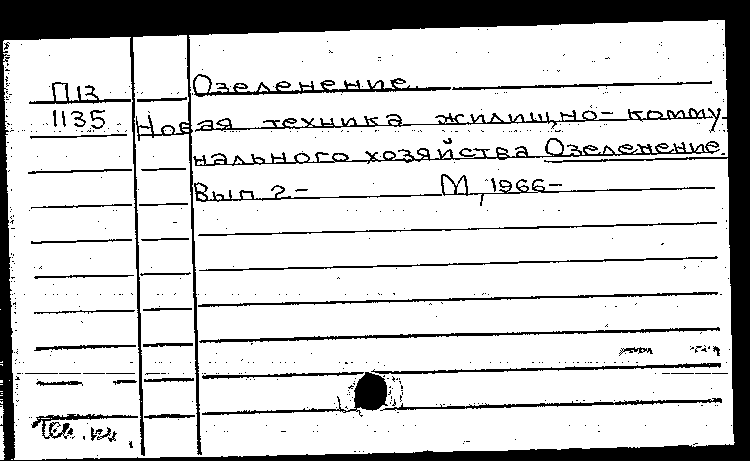 П13 Озеленение.
1135 Новая техника жилищно-комму
нального хозяйства Озеленение.
Вып 2.- М, 1966-